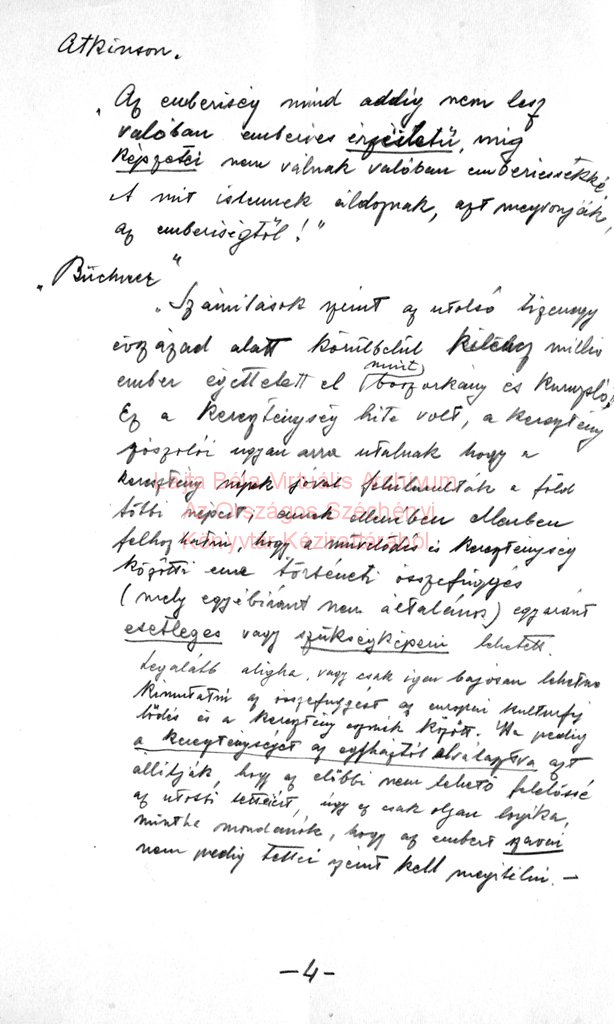 Atkinson.
„Az emberiség mind addig nem lesz
valóban emberies érzületű, míg
képzetei nem válnak valóban emberiesekké
A mit istennek áldoznak, azt megvonják
az emberiségtől!"
„Büchner"
„Számítások szerint az utolsó tizennégy
évszázad alatt körülbelül kilencz millió
ember égettetett el mint boszorkány és kuruzsló"
Ez a kereszténység hite volt, a keresztény
szószolói ugyan arra utalnak hogy a
keresztény népek jóval felülmulták a föld
többi népeit, ennek ellenében
felhozhatni, hogy a művelődés és kereszténység
közötti eme történeti összefüggés
(mely egyébiránt nem általános) egyaránt
esetleges vagy szükségképeni lehetett.
Legalább aligha, vagy csak igen bajosan lehetne
kimutatni az összefüggést az europai kulturfej
lődés és a keresztény eszmék között. Ha pedig
a kereszténységet az egyháztól elválasztva azt
állítják, hogy az előbbi nem tehető felelőssé
az utóbbi tetteiért, úgy ez csak olyan logika,
mintha mondanók, hogy az embert szavai
nem pedig tettei szerint kell megítélni. —
Lajta Béla Virtuális Archívum
az Országos Széchényi
Könyvtár Kézirattárából
— 4 -